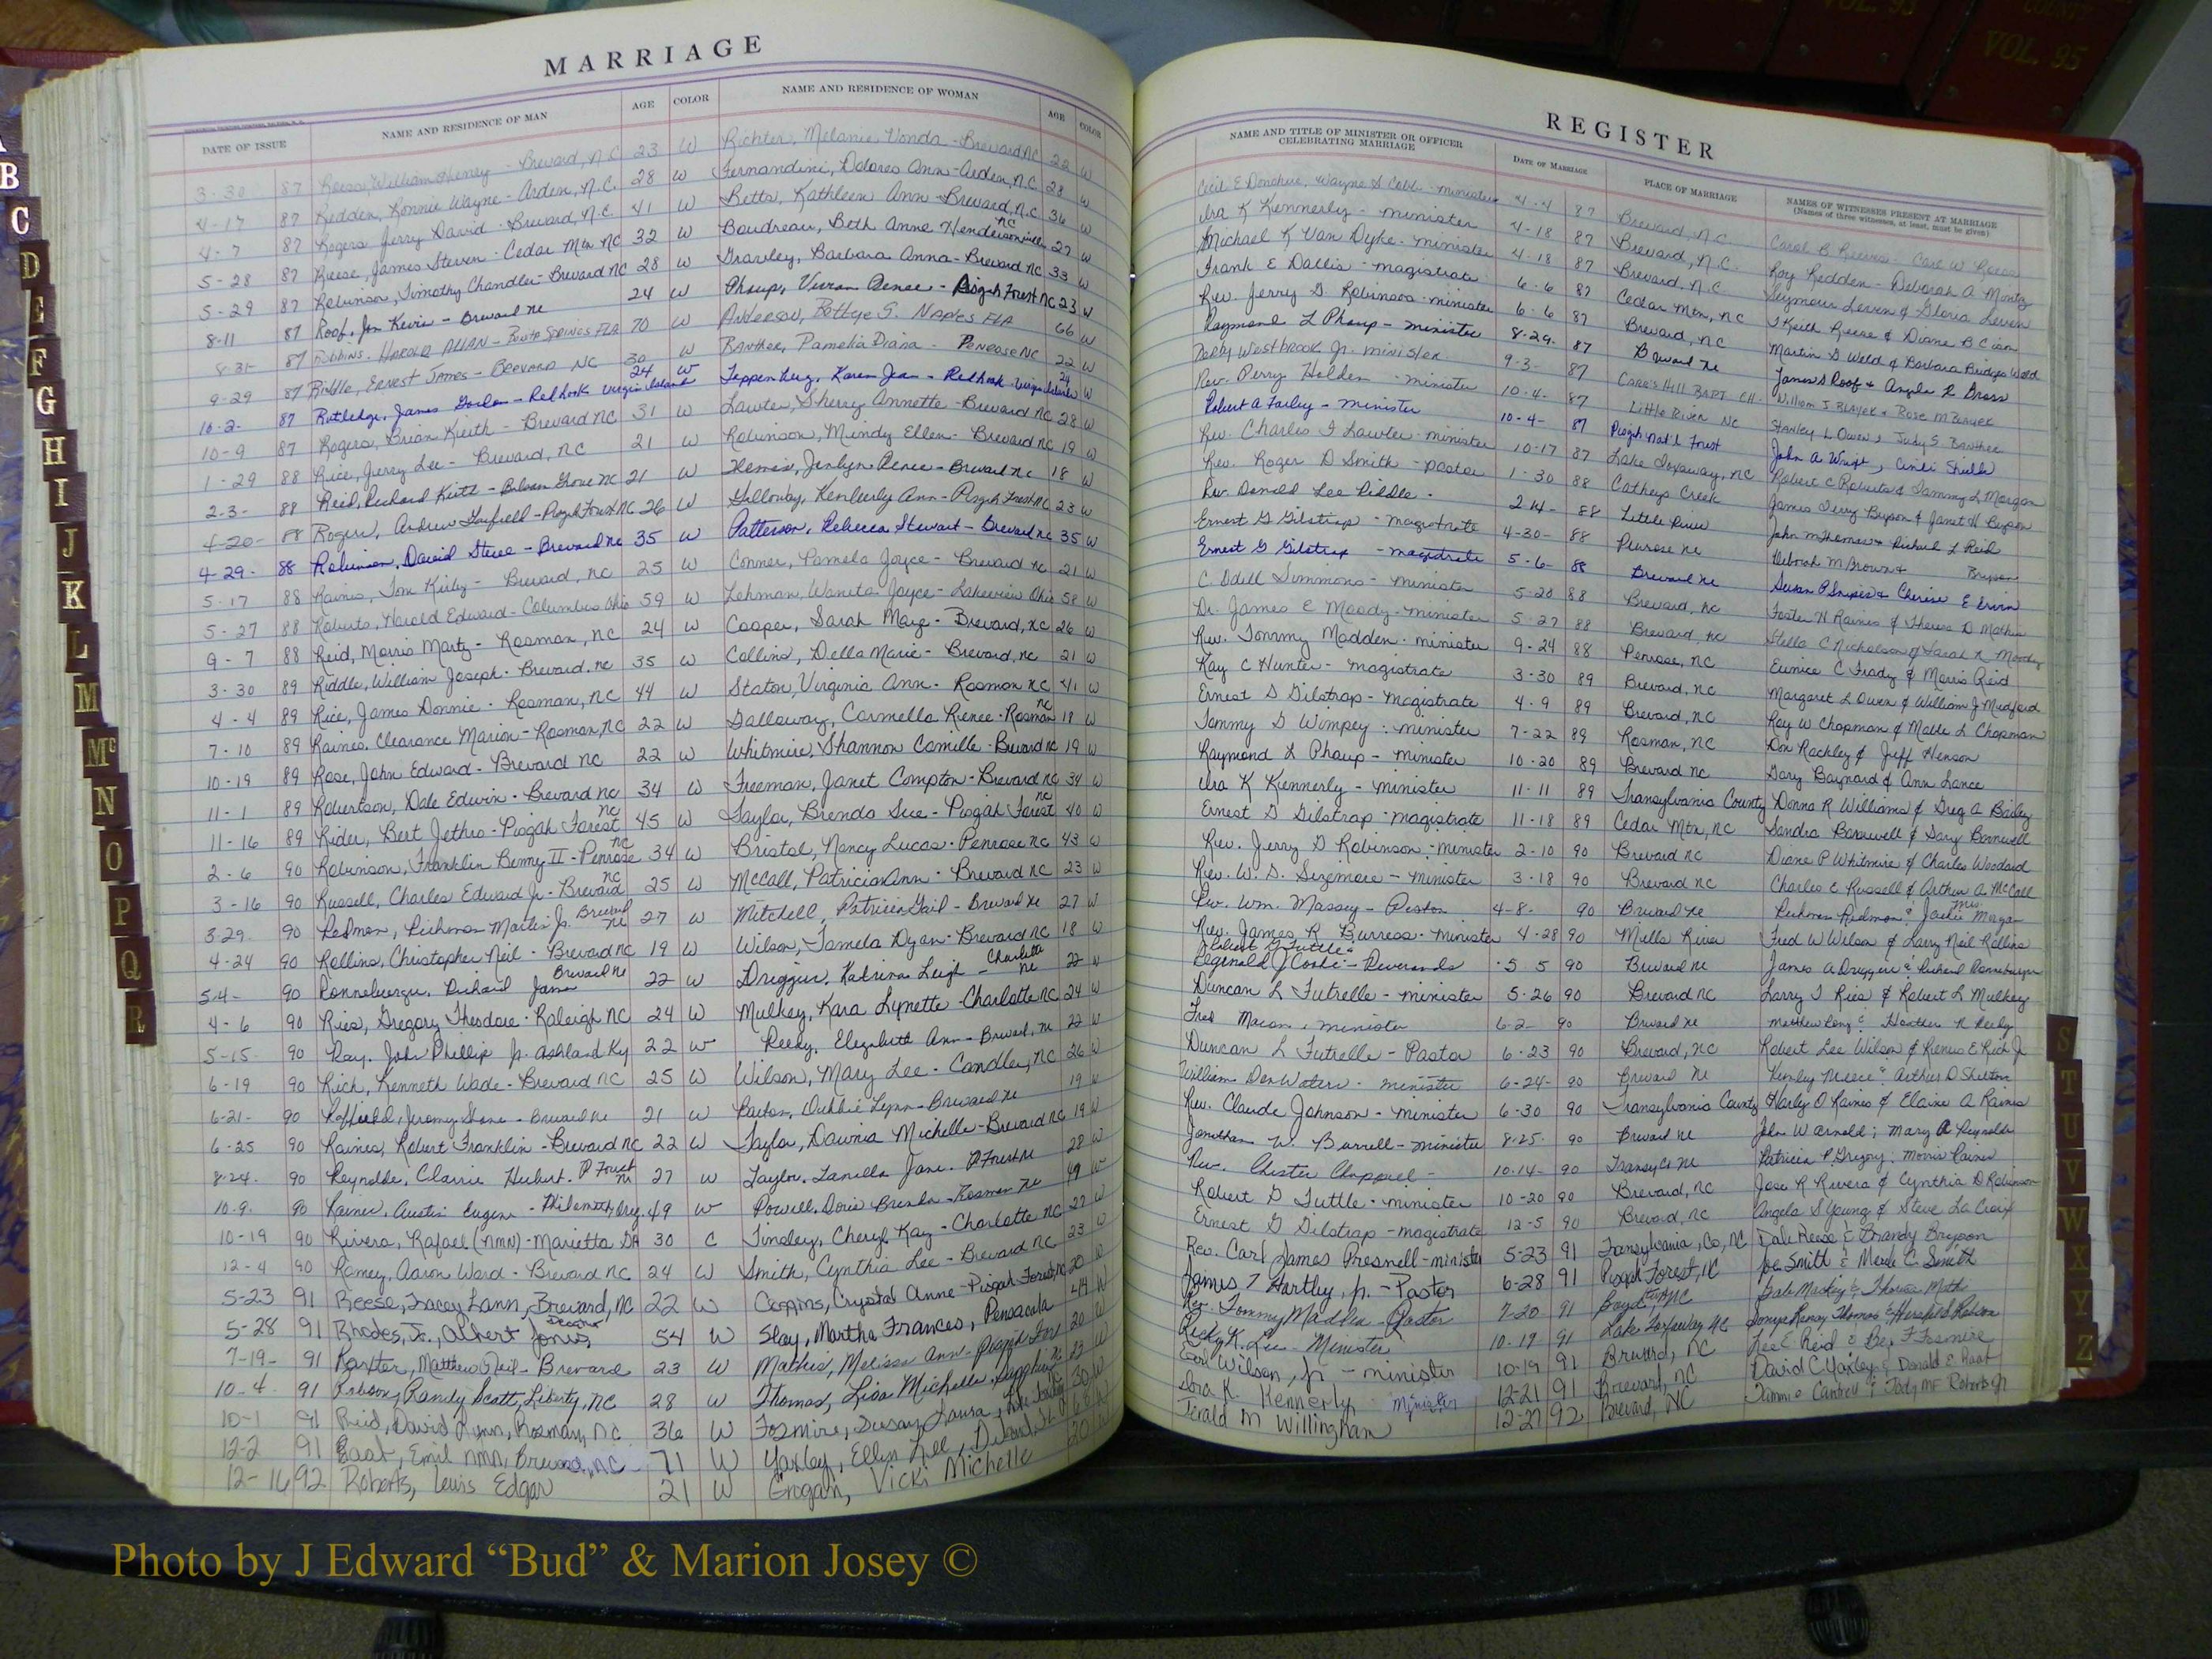 MARRIAGE
DATE OF ISSUE NAME AND RESIDENCE OF MAN AGE COLOR NAME AND RESIDENCE OF WOMAN AGE COLOR
3-30 87 Reese, William Henry - Brevard, N.C. 23 W Richter, Melanie Vonda - Brevard NC 22 W
4-17 87 Redden, Ronnie Wayne - Arden, N.C. 28 W Fernandini, Dolores Ann - Arden, N.C. 28 W
4-7 87 Rogers Jerry David - Brevard, N.C. 41 W Betts, Kathleen Ann - Brevard, N.C. 36 W
5-28 87 Reese, James Steven - Cedar Mtn NC 32 W Boudreau, Beth Anne Hendersonville NC 27 W
5-29 87 Robinson, Timothy Chandler - Brevard NC 28 W Gravley, Barbara Anna - Brevard NC 33 W
8-11 87 Roof, Jon Kevin - Brevard NC 24 W Phaup, Renee - Pisgah Forest NC 23 W
8-31 87 Robbins, Harold Allan - Bonita Springs FLA 70 W Anderson, Bettye S. Naples FLA 66 W
9-29 87 Riddle, Ernest James - Brevard NC 30 W Banther, Pamelia Diana - Penrose NC 22 W
10-2- 87 Rutledge, James Gordon - Red Hook Virgin Islands 24 W Karen Jean - Red Hook Virgin Islands 24 W
10-9 87 Rogers, Brian Keith - Brevard NC 31 W Lawter, Sherry Annette - Brevard NC 28 W
1-29 88 Rice, Jerry Lee - Brevard, NC 21 W Robinson, Mindy Ellen - Brevard NC 19 W
2-3- 88 Reid, Richard Keith - Balsam Grove NC 21 W Renee - Brevard NC 18 W
4-20- 88 Rogers, Andrew Garfield - Pisgah Forest NC 26 W Galloway, Kimberly Ann - Pisgah Forest NC 23 W
4-29- 88 Robinson, David Steve - Brevard NC 35 W Patterson, Rebecca Stewart - Brevard NC 35 W
5-17 88 Raines, Tom Kirby - Brevard, NC 25 W Conner, Pamela Joyce - Brevard NC 21 W
5-27 88 Roberts, Harold Edward - Columbus Ohio 59 W Lehman, Waneta Joyce - Lakeview Ohio 58 W
9-7 88 Reid, Morris Marty - Rosman, NC 24 W Cooper, Sarah Marge - Brevard, NC 26 W
3-30 89 Riddle, William Joseph - Brevard, NC 35 W Collins, Della Marie - Brevard, NC 21 W
4-4 89 Rice, James Donnie - Rosman, NC 44 W Staton, Virginia Ann - Rosman NC 41 W
7-10 89 Raines, Clearance Marion - Rosman, NC 22 W Galloway, Carmella Renee - Rosman NC 18 W
10-19 89 Rose, John Edward - Brevard NC 22 W Whitmire, Shannon Camille - Brevard NC 19 W
11-1 89 Robertson, Dale Edwin - Brevard NC 34 W Freeman, Janet Compton - Brevard NC 34 W
11-16 89 Rider, Bert Jethro - Pisgah Forest NC 45 W Taylor, Brenda Sue - Pisgah Forest NC 40 W
2-6 90 Robinson, Franklin Benny II - Penrose NC 34 W Bristol, Nancy Lucas - Penrose NC 43 W
3-16 90 Russell, Charles Edward Jr - Brevard NC 25 W McCall, Patricia Ann - Brevard NC 23 W
3-29- 90 Redmon, Richmon Martin Jr. Brevard NC 27 W Mitchell, Patricia Gail - Brevard NC 27 W
4-24 90 Rollins, Christopher Neil - Brevard NC 19 W Wilson, Tamela Dyan - Brevard NC 18 W
5-4- 90 Ronneburger, Richard James Brevard NC 22 W Driggers, Katrina Leigh - Charlotte NC 22 W
4-6 90 Ries, Gregory Theodore - Raleigh NC 24 W Mulkey, Kara Lynette - Charlotte NC 24 W
5-15- 90 Ray, John Phillip Jr. Ashland Ky 22 W Reeky, Elizabeth Ann - Brevard, NC 22 W
6-19 90 Rich, Kenneth Wade - Brevard NC 25 W Wilson, Mary Lee - Candler, NC 26 W
6-21- 90 Raffield, Jeremy Shane - Brevard NC 21 W Debbie Lynn - Brevard NC 19 W
6-25 90 Raines, Robert Franklin - Brevard NC 22 W Taylor, Dawnia Michelle - Brevard NC 19 W
8-24- 90 Reynolds, Clarrie Hubert - P Forest NC 27 W Taylor, Lanella Jane - P Forest NC 28 W
10-9- 90 Raines, Austin Eugene - Philomath, Oreg. 49 W Powell, Doris Brenda - Rosman NC 49 W
10-19 90 Rivera, Rafael (NMN) - Marietta GA 30 C Tinsley, Cheryl Kay - Charlotte NC 27 W
12-4 90 Ramey, Aaron Ward - Brevard NC 24 W Smith, Cynthia Lee - Brevard NC 23 W
5-23 91 Reese, Tracey Lann, Brevard, NC 22 W Crystal Anne - Pisgah Forest, NC 20 W
5-28 91 Rhodes, Jr., Albert Jones, 54 W Slay, Martha Frances, Pensacola 44 W
7-19- 91 Raxter, Matthew Neil - Brevard 23 W Mathis, Melissa Ann - Pisgah Fore 20 W
10-4- 91 Robson, Randy Scott, Liberty, NC 28 W Thomas, Lisa Michelle, Sapphire NC 23 W
10-1 91 Reid, David Lynn, Rosman, NC 36 W Fosmire, Susan Laura, 30 W
12-2 91 Raat, Emil NMN, Brevard, NC 71 W Yaxley, Ellen 68 W
12-16 92 Roberts, Lewis Edgar 21 W Grogan, Vicki Michelle 20 W
REGISTER
NAME AND TITLE OF MINISTER OR OFFICER CELEBRATING MARRIAGE DATE OF MARRIAGE PLACE OF MARRIAGE NAMES OF WITNESSES PRESENT AT MARRIAGE
(Names of three witnesses, at least, must be given)
Cecil E Donahue, Wayne S Cobb - ministers 4-4 87 Brevard, N.C. Carol B Reeves - Carl W Reese
Ira K Kennerly - minister 4-18 87 Brevard, N.C. Roy Redden - Deborah A Mintz
Michael K Van Dyke - minister 4-18 87 Brevard, N.C. Seymour Leven & Gloria Leven
Frank E Dallis - magistrate 6-6 87 Cedar Mtn, NC J Keith Reese & Diane B
Rev. Jerry D. Robinson - minister 6-6 87 Brevard, NC Martin D Weld & Barbara Bridges Weld
Raymond L Phaup - minister 8-29- 87 Brevard NC James S Roof & Angela R
Westbrook, Jr. minister 9-3- 87 BAPT. CH. William J & Rose M
Rev. Perry Holden - minister 10-4- 87 Little River NC Stanley L Owen, Judy S Banther
Robert A Farley - minister 10-4- 87 Pisgah Nat'l Forest John A Wright, Shields
Rev. Charles I Lawter - minister 10-17 87 Lake Toxaway, NC Robert C Roberts & Tammy L Morgan
Rev. Roger D Smith - pastor 1-30 88 Catheys Creek James Terry Bryson & Janet H Bryson
Rev. Donald Lee Riddle - 2-14- 88 Little River John M Thomas & Richard L Reid
Ernest G Gilstrap - magistrate 4-30- 88 Penrose NC Deborah M Brown & Bryson
Ernest G Gilstrap - magistrate 5-6- 88 Brevard NC Susan P Snipes & Cherise E Ervin
C. Odell Simmons - minister 5-20 88 Brevard, NC Foster H Raines & Theresa D Mathis
Dr. James E Moody - minister 5-27 88 Brevard, NC Stella C Nicholson & Sarah R Moody
Rev. Tommy Madden - minister 9-24 88 Penrose, NC Eunice C Frady & Morris Reid
Kay C Hunter - magistrate 3-30 89 Brevard, NC Margaret L Owen & William J Medford
Ernest G Gilstrap - Magistrate 4-9 89 Brevard, NC Ray W Chapman & Matte L Chapman
Tommy D Wimpey - minister 7-22 89 Rosman, NC Don Rackley & Jeff Henson
Raymond L Phaup - minister 10-20 89 Brevard NC Gary Baynard & Ann Lance
Ira K Kennerly - minister 11-11 89 Transylvania County Donna R Williams & Greg A Bailey
Ernest G Gilstrap - magistrate 11-18 89 Cedar Mtn, NC Sandra Barnwell & Gary Barnwell
Rev. Jerry D Robinson - minister 2-10 90 Brevard NC Diane P Whitmire & Charles Woodard
Rev. W. S. Sizemore - minister 3-18 90 Brevard NC Charles E Russell & Arthur A McCall
Rev. Wm. Massey - Pastor 4-8- 90 Brevard NC Richmon Redmon & Mrs. Jackie Morgan
Rev. James R Burress - minister 4-28 90 Mills River Fred W Wilson & Larry Neil Rollins
Robert G Tuttle & Reginald J Cooke - Reverends 5-5 90 Brevard NC James A Driggers & Richard Ronneburger
Duncan L Futrelle - minister 5-26 90 Brevard NC Larry T Ries & Robert L Mulkey
Fred Macon, minister 6-2- 90 Brevard NC Matthew Long & Heather R Reeky
Duncan L Futrelle - Pastor 6-23 90 Brevard, NC Robert Lee Wilson & Renus E Rich Jr
William Den Waters - minister 6-24- 90 Brevard NC Kenley Meece & Arthur D Shelton
Rev. Claude Johnson - minister 6-30 90 Transylvania County Harley O Raines & Elaine A Raines
Jonathan W. Burrell - minister 8-25- 90 Brevard NC John W Arnold; Mary A Reynolds
Rev. Chester Chappel - 10-14- 90 Transy Co NC Patricia P. Gregory; Morris Raines
Robert G Tuttle - minister 10-20 90 Brevard, NC Jose R Rivera & Cynthia D Robinson
Ernest G Gilstrap - magistrate 12-5 90 Brevard, NC Angela S Young & Steve La Croix
Rev. Carl James Presnell - minister 5-23 91 Transylvania, Co, NC Dale Reese & Brandy Bryson
James T Hartley, Jr. - Pastor 6-28 91 Pisgah Forest, NC Joe Smith & Merle C. Smith
Rev. Tommy Madden - Pastor 7-20 91 Boyd NC Gale Mackey & Thomas Mathis
Ricky K. Lee - Minister 10-19 91 Lake Toxaway NC Sonya Renay Thomas & Hershel Robson
Earl Wilson, Jr - minister 10-19 91 Brevard, NC Lee E Reid & F Fosmire
Ira K. Kennerly - Minister 12-21 91 Brevard, NC David C Yaxley & Donald E. Raat
Jerald M Willingham 12-27 92 Brevard, NC Tammie Cantrell & Jody Mc Roberts Jr
B
C
D
E
F
G
H
I
J
K
L
M
Mc
N
O
P
Q
R
S
T
U
V
W
X
Y
Z
VOL. 93
COUNTY
VOL. 95
Photo by J Edward “Bud” & Marion Josey ©